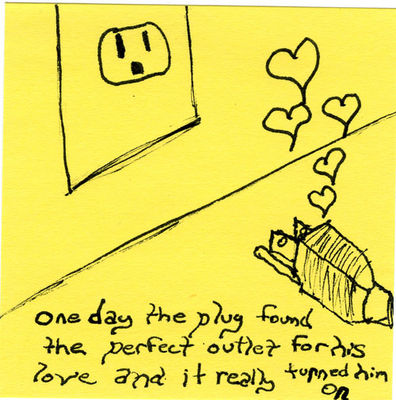 One day the plug found
the perfect outlet for his
love and it really turned him
on